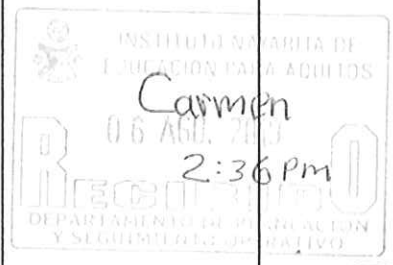 INSTITUTO NAYARITA DE
EDUCACIÓN PARA ADULTOS
Carmen
06 AGO.
2:36 Pm
RECIBIDO
DEPARTAMENTO DE PLANEACIÓN
Y SEGUIMIENTO OPERATIVO